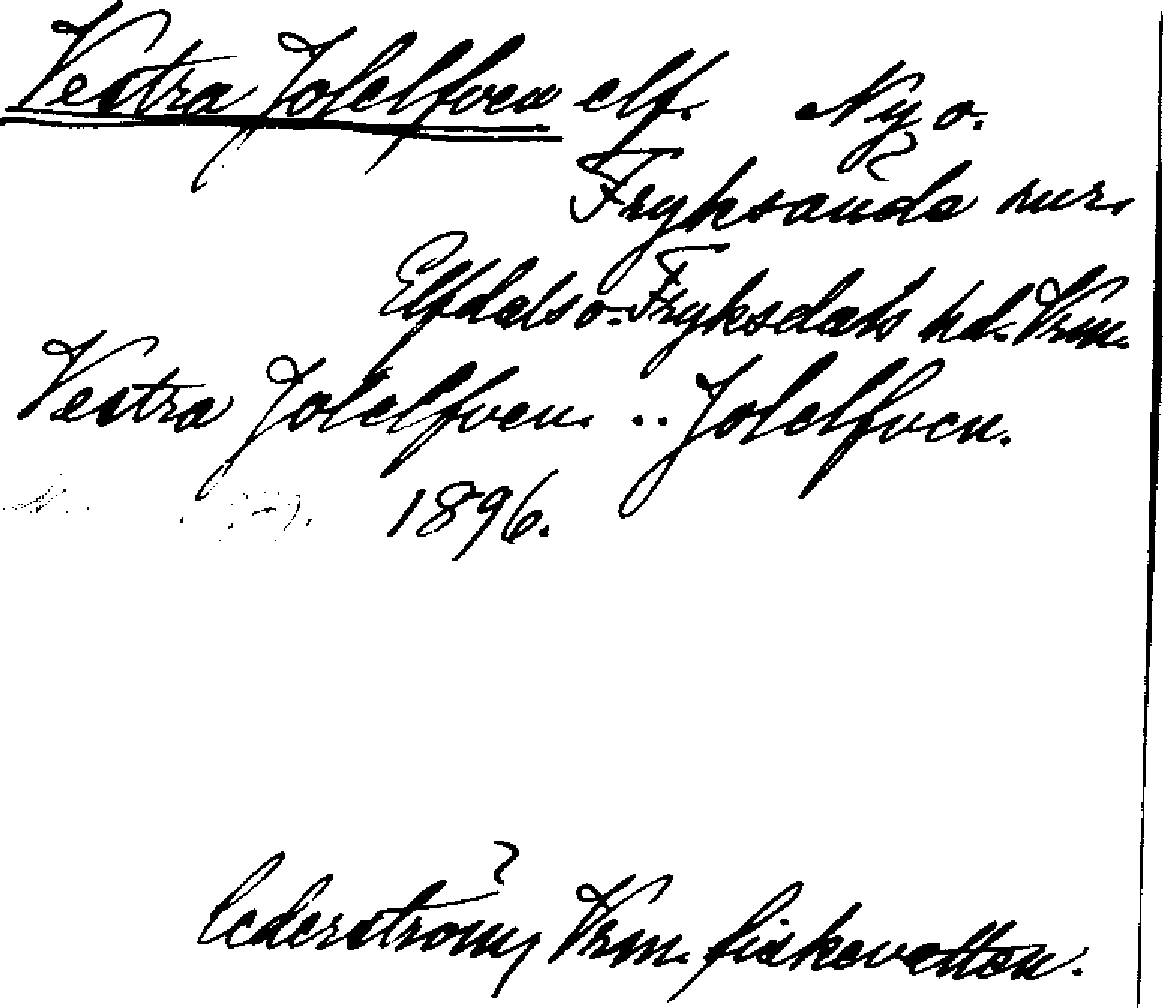 Vestra Jolelfven elf. Ny o.
Fryksände snr.
Elfdals o. Fryksdals hd. Vrm.
Vestra Jolelfven. .. Jolelfven.
1896.
Cederström, Vrm. fiskevatten.